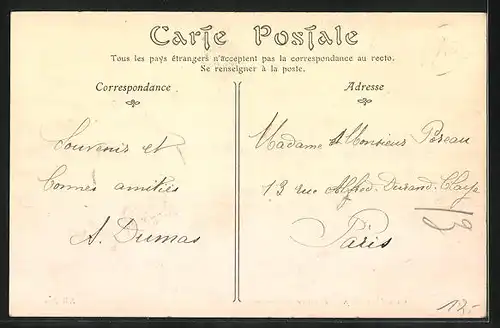 Carte Postale
Tous les pays étrangers n'acceptent pas la correspondance au recto.
Se renseigner à la poste.
Correspondance
Adresse
Souvenir et
bonnes amitiés
A. Dumas
Madame et Monsieur
13 rue Durand-Claye
Paris
12.-